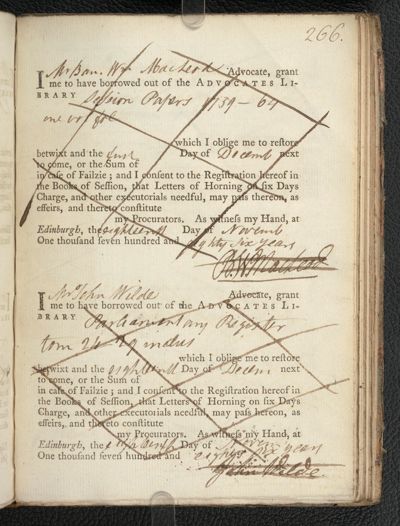 266.
I Mr Ban. Wm MacLeod Advocate, grant
me to have borrowed out of the ADVOCATES LI-
BRARY Session Papers 1759 – 64
one vol fol
which I oblige me to restore
betwixt and the first Day of Decemb next
to come, or the Sum of
in case of Failzie; and I consent to the Registration hereof in
the Books of Session, that Letters of Horning on six Days
Charge, and other executorials needful, may pass thereon, as
effeirs, and thereto constitute
my Procurators. As witness my Hand, at
Edinburgh, the eighteenth Day of Novemb
One thousand seven hundred and eighty six years
B. W. MacLeod
I Mr John Wilde Advocate, grant
me to have borrowed out of the ADVOCATES LI-
BRARY Parliamentary Register
tom 26
which I oblige me to restore
betwixt and the eighteenth Day of Decem next
to come, or the Sum of
in case of Failzie; and I consent to the Registration hereof in
the Books of Session, that Letters of Horning on six Days
Charge, and other executorials needful, may pass hereon, as
effeirs, and thereto constitute
my Procurators. As witness my Hand, at
Edinburgh, the eighteenth Day of Novem
One thousand seven hundred and eighty six years
John Wilde.